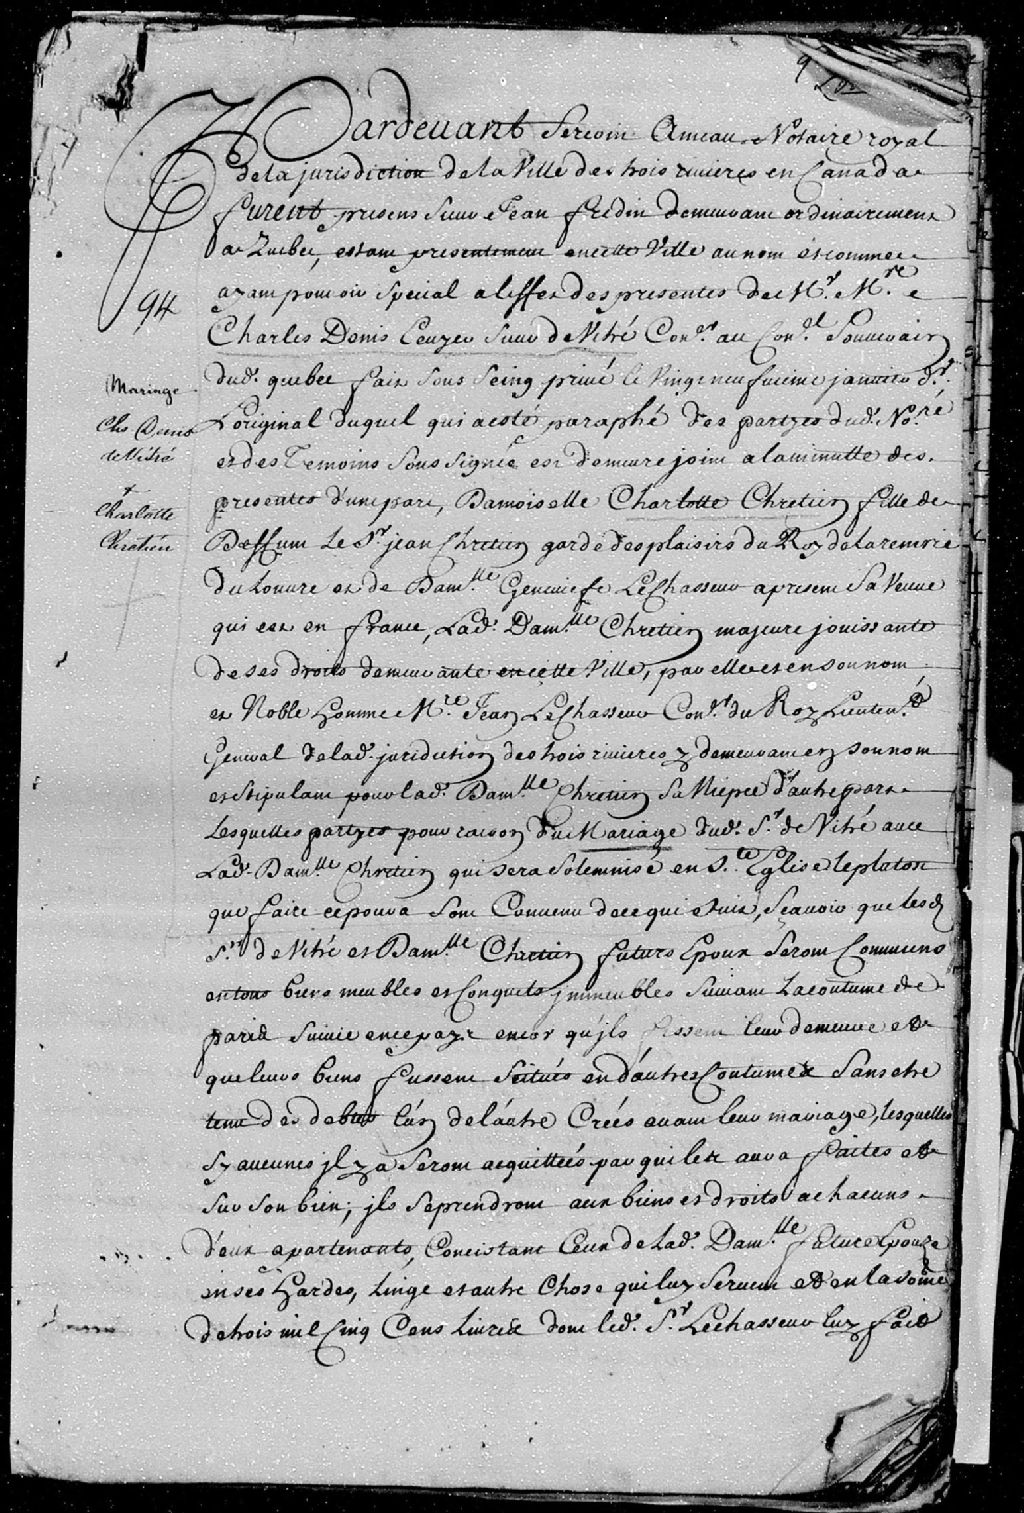 Pardevant Severin Ameau Notaire royal
de la jurisdiction de la Ville des trois rivieres en Canada
furent presens Sieur Jean fredin demeurant ordinairement
a Quebec, estant presentement en cette Ville au nom et comme
ayant pouvoir Special a l'effet des presentes de Mr. Mre
Charles Denis Ecuyer Sieur de Vitré Conser. au Conel Souverain
dud. quebec fait sous Seing privé le Vingt neufiesme janvier dr.
L'original duquel qui a esté paraphé des partyes dud. Nore
et des Temoins Sous Signée est demeuré joint a la minutte des
presentes d'une part, Damoiselle Charlotte Chretien fille de
Deffunt Le Sr jean Chretien garde des plaisirs du Roy de la
du Louvre et de Damlle Geneviefe LeChasseur apresent Sa Veuve
qui est en france, Lad. Damlle Chretien majeure jouissante
de ses droits demeurante en cette Ville, par elle et en son nom
et Noble homme Mre Jean LeChasseur Conser du Roy Lieutent
General de lad. juridiction des trois rivieres y demeurant en son nom
et Stipulant pour lad. Damlle Chretien Sa Niepce d'autre part
Lesquelles partyes pour raison du Mariage dud. Sr. de Vitré avec
Lad. Damlle Chretien qui sera Solemnisé en Ste Eglise le plutost
que faire ce poura Sont Convenu de ce qui Suit, Sçavoir que lesd
Sr. de Vitré et Damlle Chretien futurs Epoux Seront Communs
en tous biens meubles et Conquets jmmeubles Suivant La coutume de
paris Suivie en ce pays encor qu'jls fissent leur demeure et
que leurs biens fussent Scitués en d'autres Coutumes Sans etre
tenu des debtes l'un de l'autre Créés avant leur mariage, lesquelles
Sy aucunes jl y a Seront acquittées par qui les aura faites et
Sur Son bien; jls Seprendront aux biens et droits a chacuns
d'eux apartenants, Concistant Ceux de Lad. Damlle future Epouze
en ses Hardes, Linge et autre Chose qui luy Servent et en la Some
de trois mil Cinq Cens Livres dont led. Sr. LeChasseur luy fait
94
Mariage
Chs Denis
de Vitré
+
Charlotte
Chretien